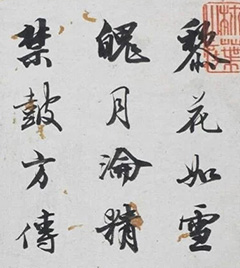 黎花如雪
魄月淪精
禁鼓方傳